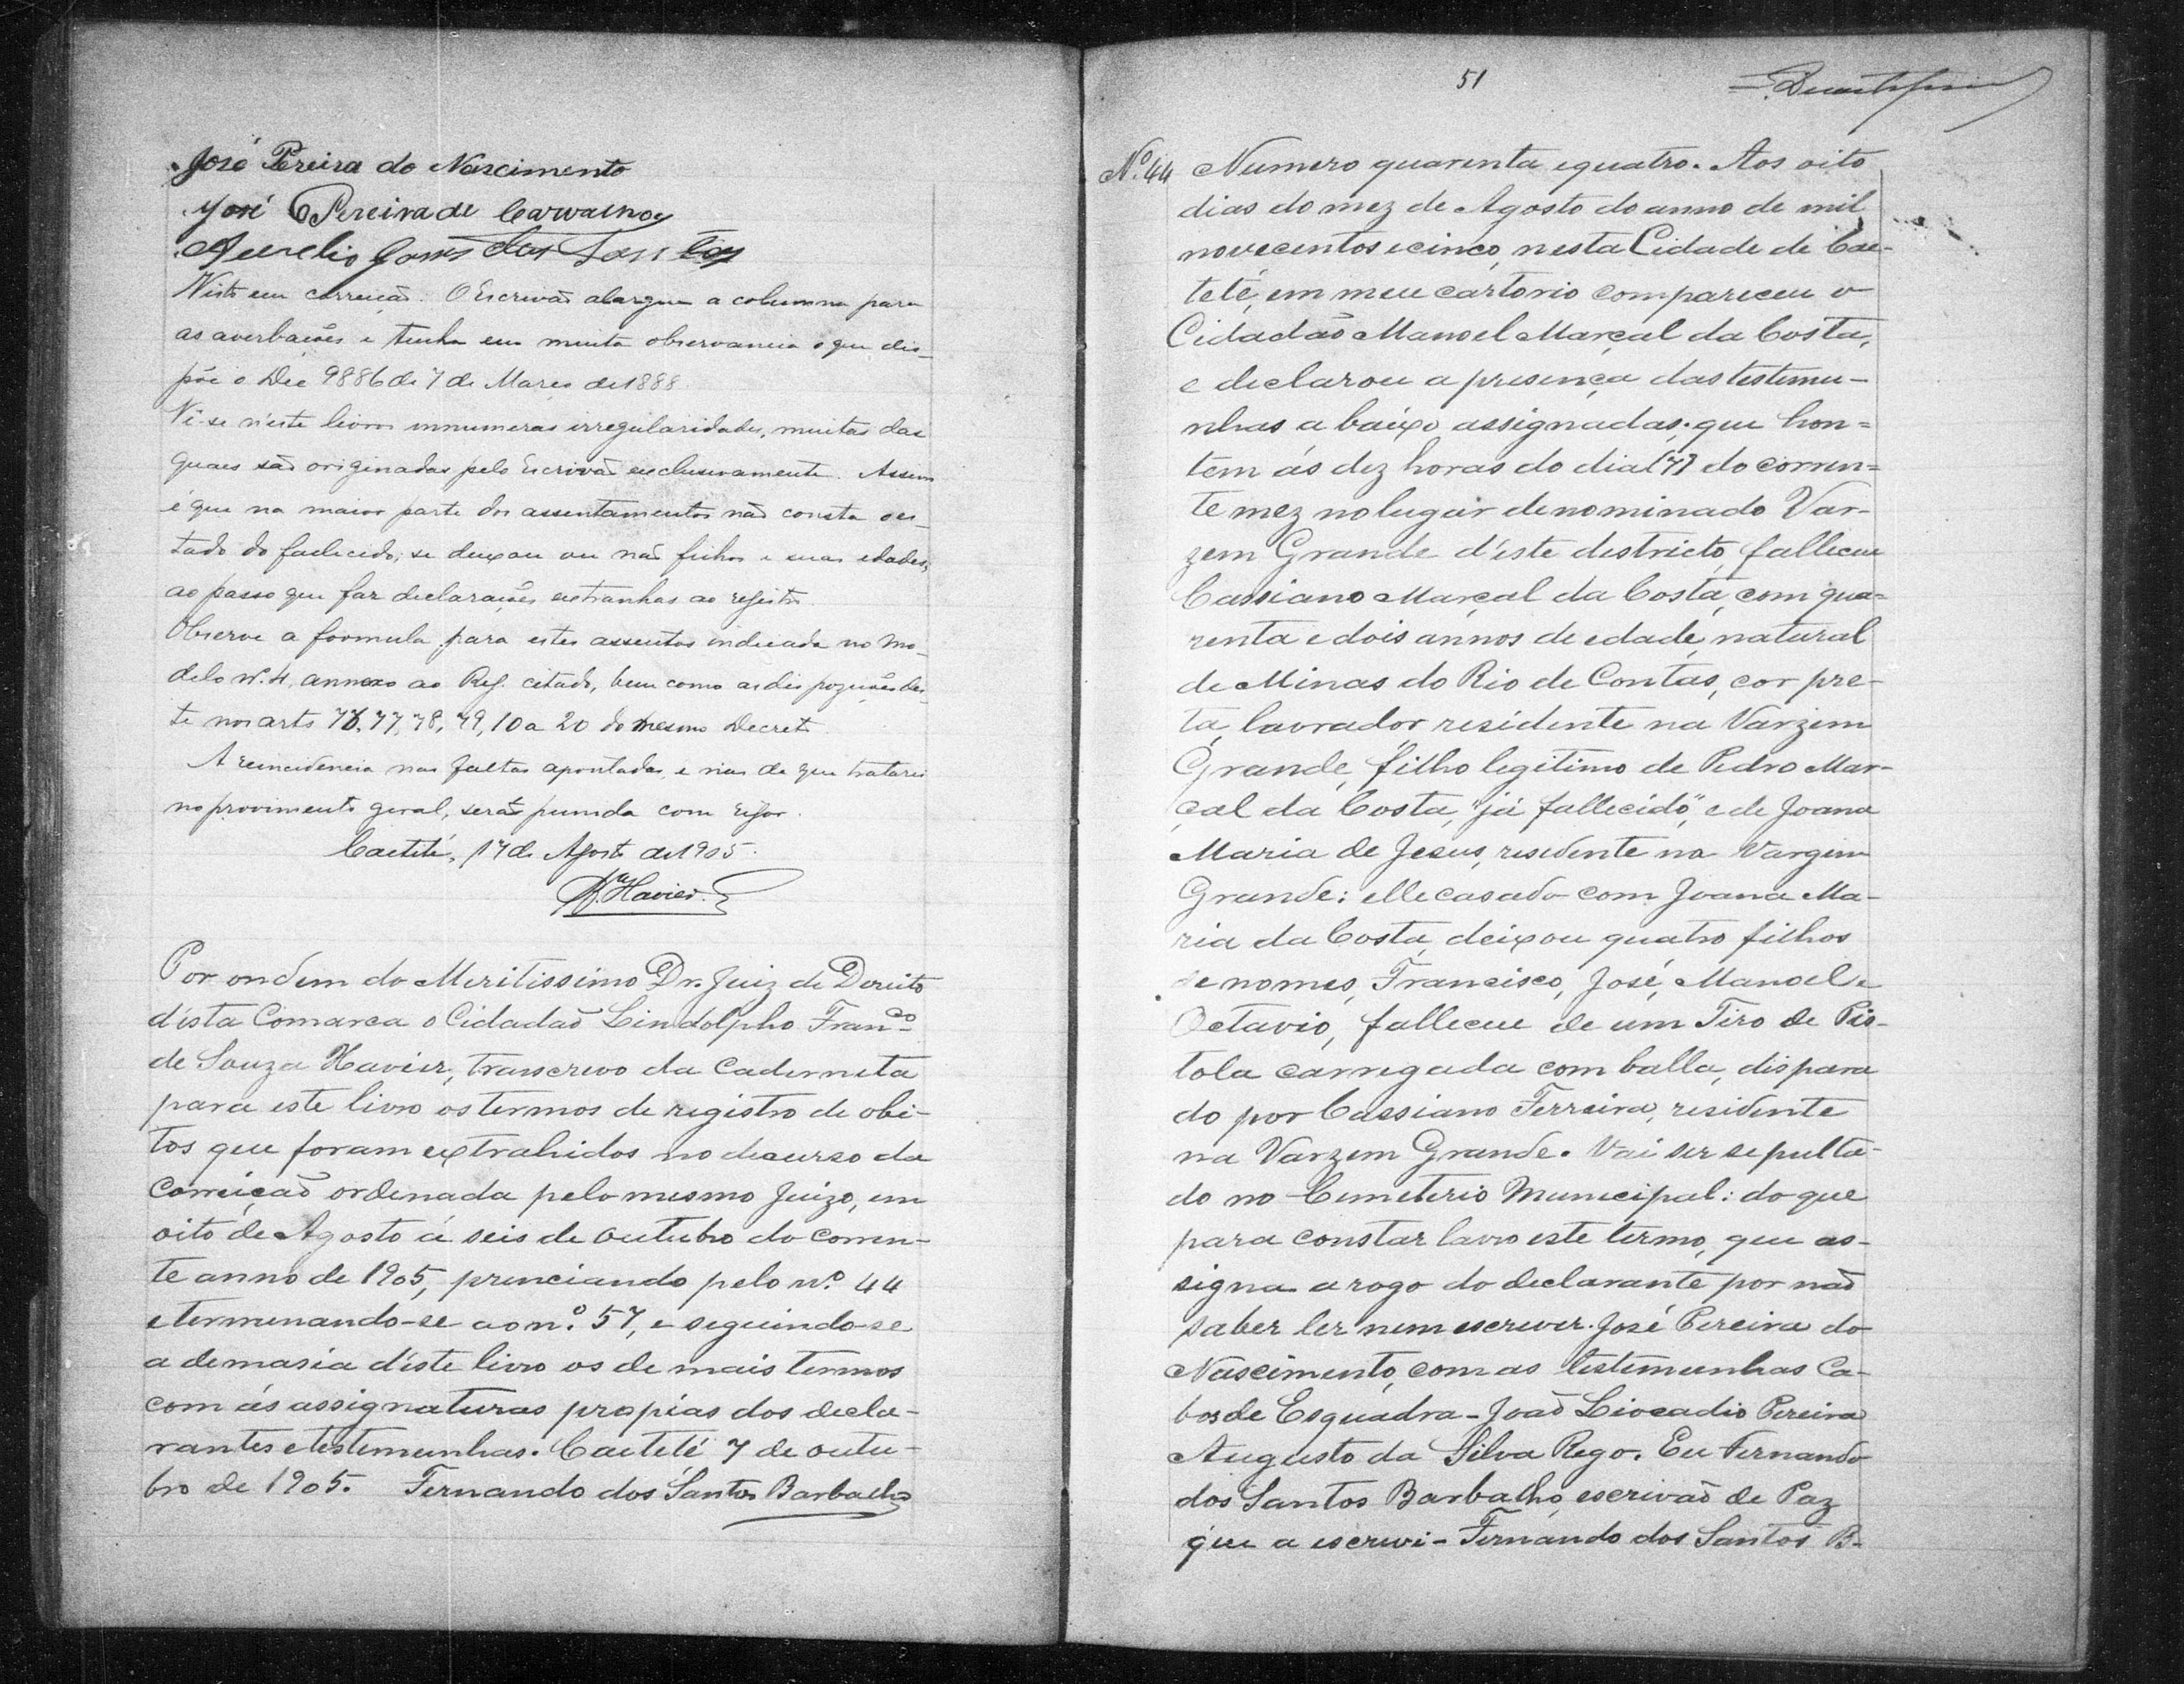 José Pereira do Nascimento
José Pereira de Carvalho
Aurelio Gomes dos Santos
Visto em correição. O Escrivão alargue a columna para
as averbações e tenha em muita observancia o que dis-
põe o Dec 9886 de 7 de Março de 1888.
Vê-se n'este livro innumeras irregularidades, muitas das
quaes são originadas pelo Escrivão exclusivamente. Assim
é que na maior parte dos assentamentos não consta o es-
tado do fallecido, se deixou ou não filhos e suas edades,
ao passo que faz declarações extranhas ao registro.
Observe a formula para estes assentos indicada no mo-
delo nº. 4, annexo ao Reg. citado, bem como as disposições
te nos arts 76, 77, 78, 79, 10 a 20 do mesmo Decreto
A reincidencia nas faltas apontadas, e nas de que tratarei
no provimento geral, será punida com rigor.
Caetité, 17 de Agosto de 1905.
Xavier.
Por ordem do Meritissimo Dr. Juiz de Direito
d'esta Comarca o Cidadão Lindolpho Franco
de Souza Xavier, transcrevo da Caderneta
para este livro os termos de registro de obi-
tos que foram extrahidos no decurso da
Correição ordenada pelo mesmo Juizo, em
oito de Agosto á seis de outubro do corren-
te anno de 1905, princiando pelo nº. 44
e terminando-se ao n.º 57, e seguindo-se
a demasia d'este livro os de mais termos
com ás assignaturas propias dos decla-
rantes e testemunhas. Caeteté 7 de outu-
bro de 1905. Fernando dos Santos Barbalho
51
Nº. 44 Numero quarenta equatro. Aos oito
dias do mez de Agosto do anno de mil
novecentos e cinco, nesta Cidade de Cae-
teté, em meu cartorio compareceu o
Cidadão Manoel Marçal da Costa,
e declarou a presença das testemu-
nhas a baixo assignadas, que hon=
tem ás dez horas do dia (7) do corren=
te mez no lugar denominado Var-
zem Grande d'este districto, falleceu
Cassiano Marçal da Costa, com qua=
renta e dois annos de edade, natural
de Minas do Rio de Contas, cor pre-
ta, lavrador residente na Varzem
Grande, filho legitimo de Pedro Mar-
çal da Costa, "já fallecido," e de Joana
Maria de Jesus, residente na Vargem
Grande: elle casado com Joana Ma-
ria da Costa, deixou quatro filhos
de nomes, Francisco, José, Manoel e
Octavio, falleceu de um Tiro de Pis-
tola carregada com balla, dispara
do por Cassiano Ferreira, residente
na Varzem Grande. Vai ser sepulta-
do no Cemeterio Municipal: do que
para constar lavro este termo, que as-
signa a rogo do declarante por não
saber ler nem escrever. José Pereira do
Nascimento, com as testemunhas Ca-
bos de Esquadra - João Liocadio Pereira
Augusto da Silva Rego. Eu Fernando
dos Santos Barbalho, escrivão de Paz
que a escrevi - Fernando dos Santos B.